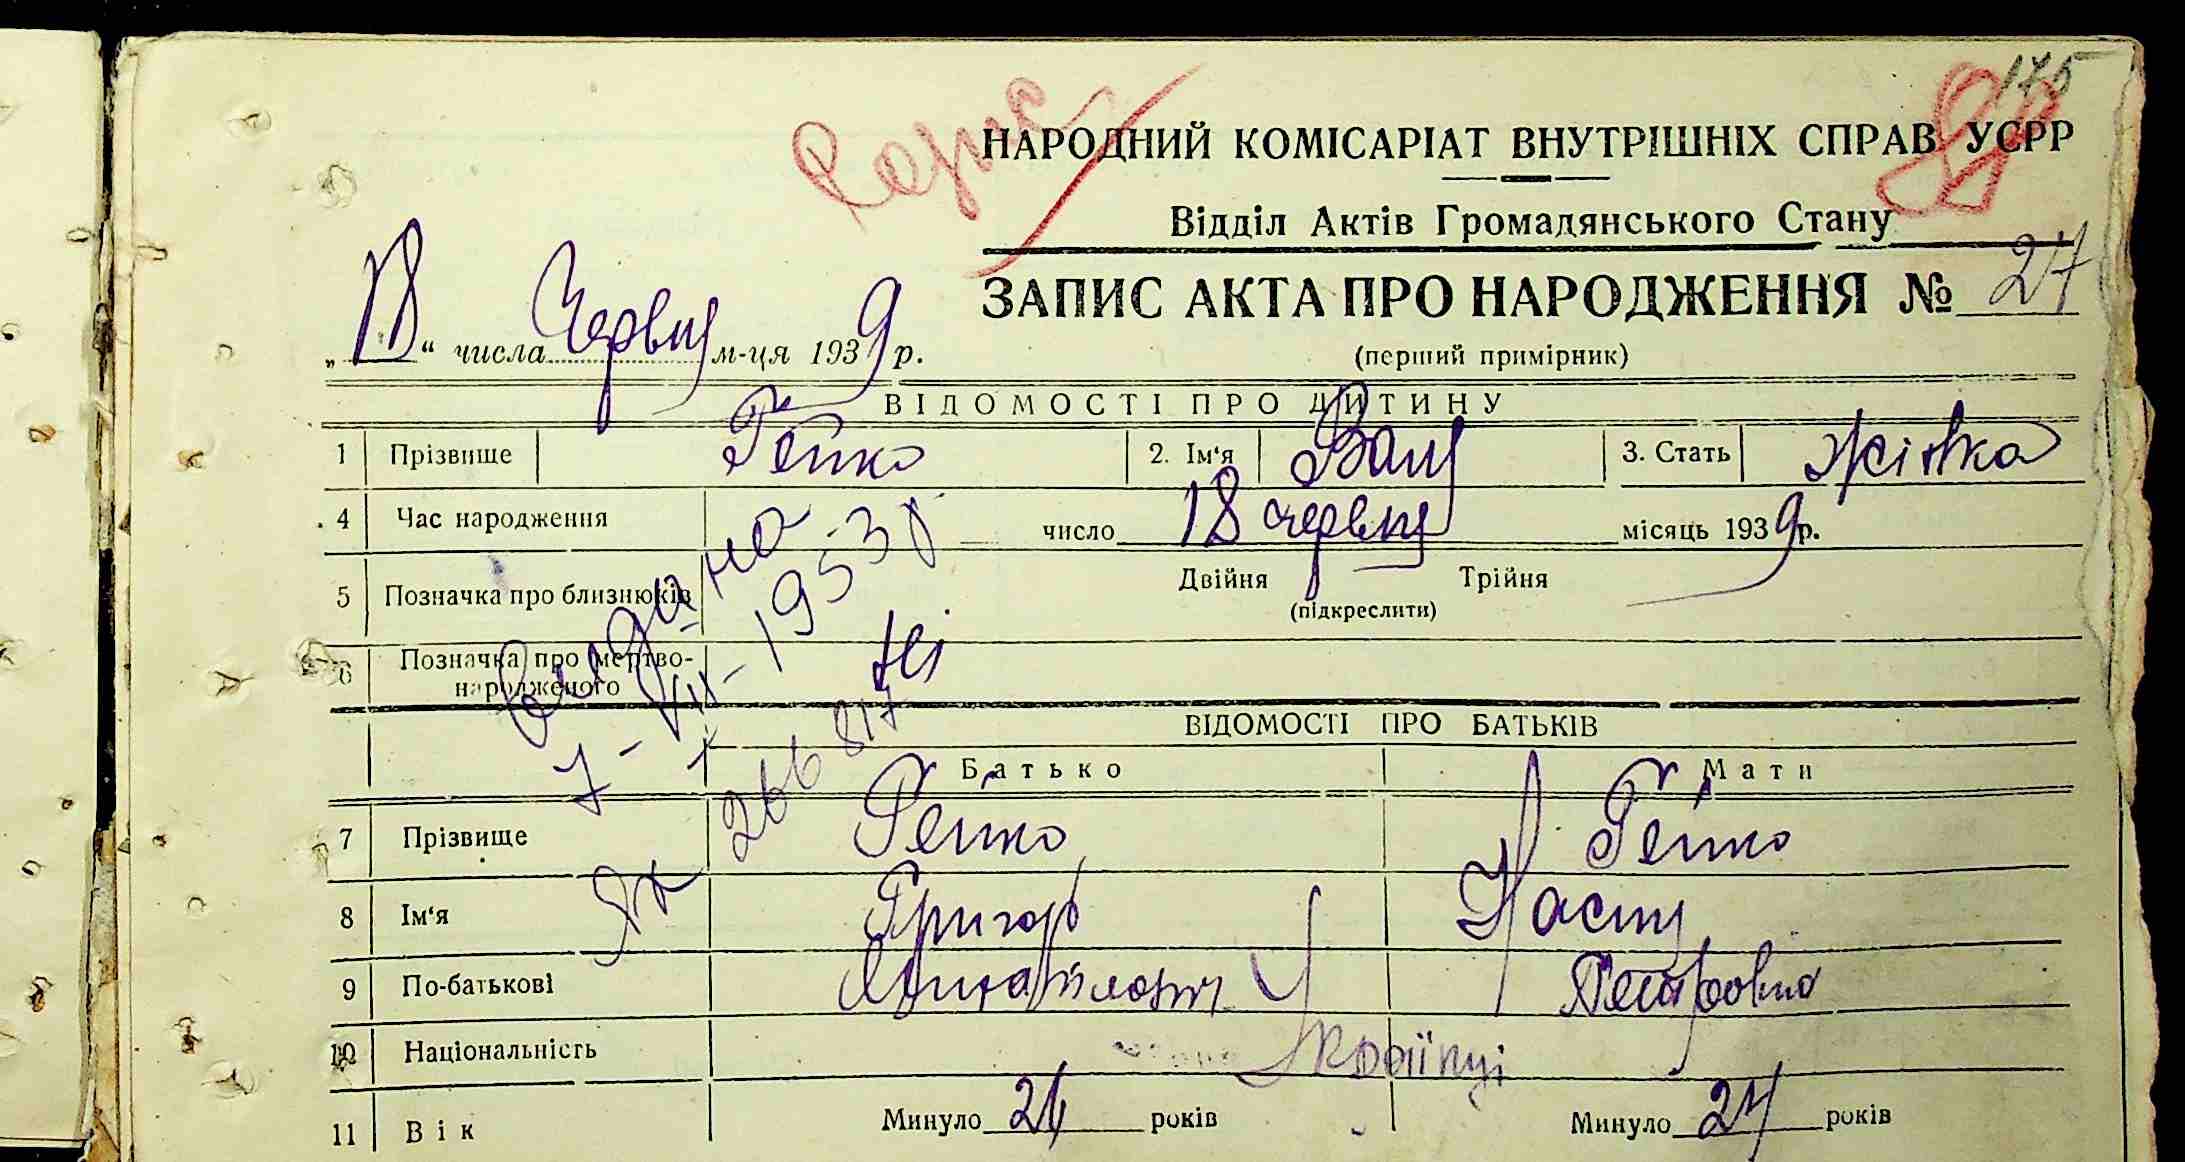 175
НАРОДНИЙ КОМІСАРІАТ ВНУТРІШНІХ СПРАВ УСРР
Відділ Актів Громадянського Стану
ЗАПИС АКТА ПРО НАРОДЖЕННЯ № 27
(перший примірник)
„18“ числа Червня м-ця 1939 р.
ВІДОМОСТІ ПРО ДИТИНУ
1 Прізвище Гейко 2. Ім‘я Валя 3. Стать жінка
4 Час народження число 18 червня місяць 1939 р.
5 Позначка про близнюків Двійня Трійня
(підкреслити)
6 Позначка про мертво-
народженого Ні
Видано
7-VII-1953 р
266817
ВІДОМОСТІ ПРО БАТЬКІВ
Батько Мати
7 Прізвище Гейко Гейко
8 Ім‘я Григор Настя
9 По-батькові Михайлович Петровна
10 Національність Українці
11 Вік Минуло 26 років Минуло 24 років